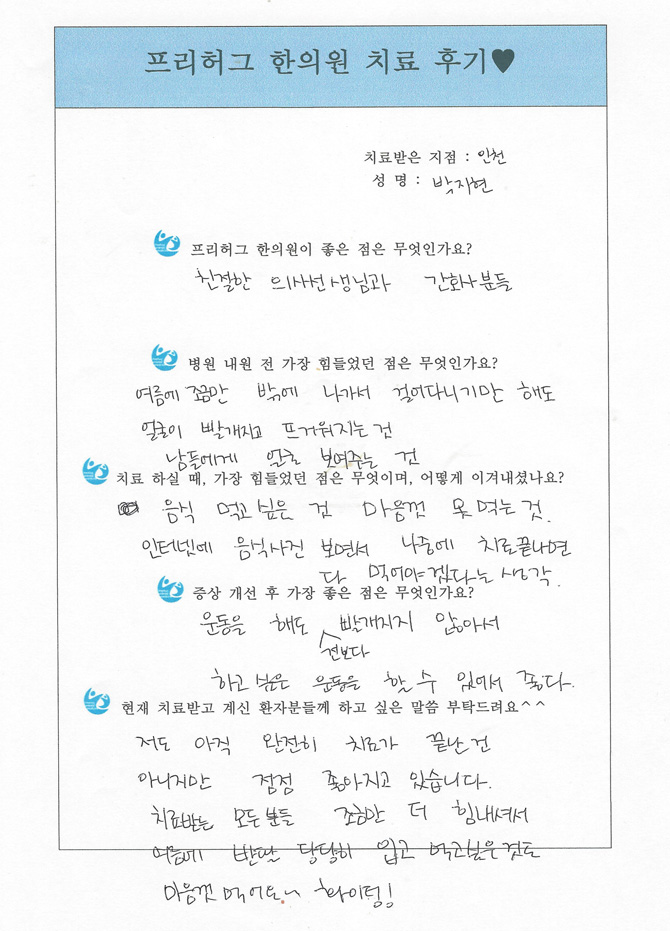 프리허그 한의원 치료 후기♥
치료받은 지점 : 인천
성 명 : 박지현
프리허그 한의원이 좋은 점은 무엇인가요?
친절한 의사선생님과 간호사분들
병원 내원 전 가장 힘들었던 점은 무엇인가요?
여름에 조금만 밖에 나가서 걸어다니기만 해도
얼굴이 빨개지고 뜨거워지는 것
남들에게 얼굴 보여주는 것
치료 하실 때, 가장 힘들었던 점은 무엇이며, 어떻게 이겨내셨나요?
음식 먹고 싶은 것 마음껏 못 먹는 것.
인터넷에 음식사진 보면서 나중에 치료끝나면
다 먹어야겠다는 생각.
증상 개선 후 가장 좋은 점은 무엇인가요?
운동을 해도 빨개지지 않아서
전보다
하고 싶은 운동을 할 수 있어서 좋다.
현재 치료받고 계신 환자분들께 하고 싶은 말씀 부탁드려요^^
저도 아직 완전히 치료가 끝난 건
아니지만 점점 좋아지고 있습니다.
치료받는 모든 분들 조금만 더 힘내셔서
여름에 반팔 당당히 입고 먹고싶은 것도
마음껏 먹어요~ 화이팅!